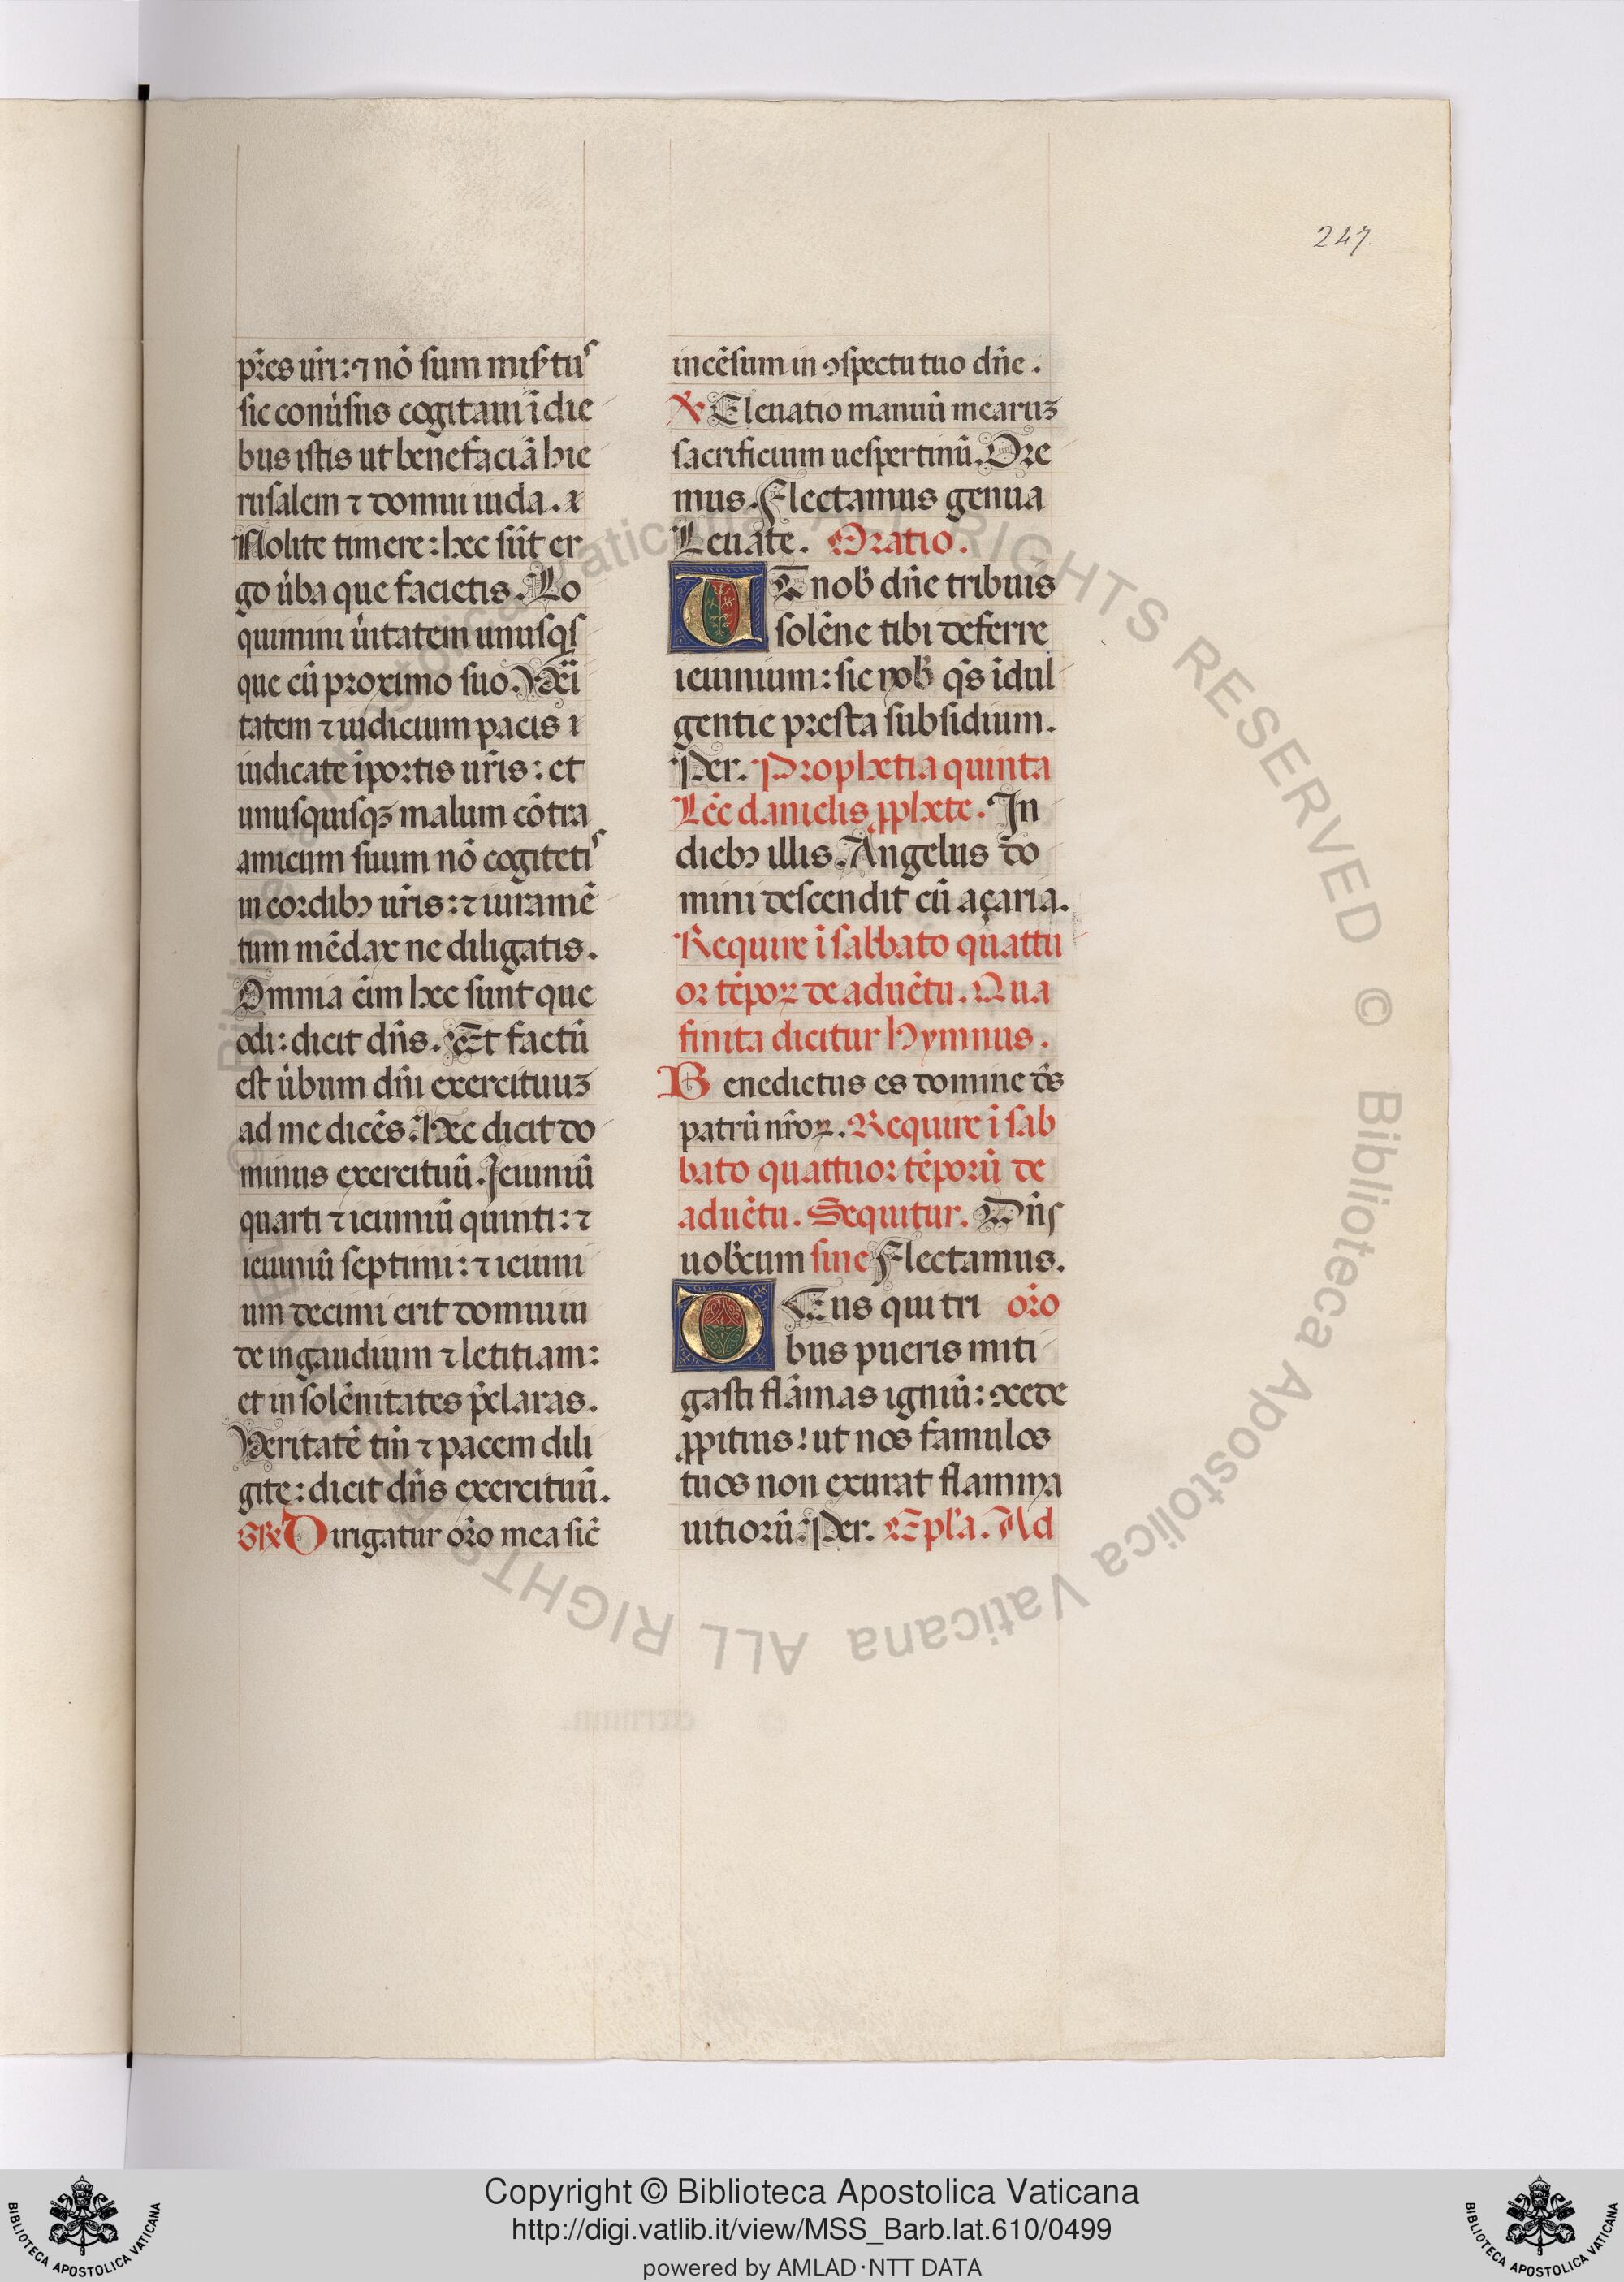 247.
pr̃es ur̃i: ⁊ nõ sum mis̃tus
sic conũsus cogitaui ĩ die
bus istis ut benefaciã hie
rusalem ⁊ domui iuda. ⁊
Nolite timere: hec sũt er
go ũba que facietis. Lo
quimini ũitatem unusqs
que cũ proximo suo. Veĩ
tatem ⁊ iudicium pacis ⁊
iudicate ĩportis ur̃is: et
unusquisqꝫ malum cõtra
amicum suum nõ cogitetis
in cordibꝰ ur̃is: ⁊ iuramẽ
tum mẽdax ne diligatis.
Omnia ẽim hec sunt que
odi: dicit dñs. Et factũ
est ũbum dñi exercituuꝫ
ad me dicẽs. Hec dicit do
minus exercituũ. Jeiuniũ
quarti ⁊ ieiuniũ quinti: ⁊
ieiuniũ septimi: ⁊ ieiuni
um decimi erit domui iu
de in gaudium ⁊ letitiam:
et in solẽnitates p̃claras.
Veritatẽ tm̃ ⁊ pacem dili
gite: dicit dñs exercituũ.
GR̃ Dirigatur oro mea sic̃
incẽsum in ꝯspectu tuo dñe.
℣ Eleuatio manuũ mearuꝫ
sacrificium uespertinũ. Ore
mus. Flectamus genua
Leuate. Oratio.
UT nob̃ dñe tribuis
solẽne tibi deferre
ieiunium: sic nob̃ q̃s ĩdul
gentie presta subsidium.
Per. Prophetia quinta
Lẽc danielis ꝓphete. In
diebꝰ illis. Angelus do
mini descendit cũ açaria.
Require ĩ sabbato quattu
or tẽpoꝝ de aduẽtu. Qua
finita dicitur Hymnus.
Benedictus es domine d̃s
patrũ nr̃oꝝ. Require ĩ sab
bato quattuor tẽporũ de
aduẽtu. Sequitur. Dñs
uobc̃um sine Flectamus.
DEus qui tri or̃o
bus pueris miti
gasti flãmas igniũ: ꝯcede
ꝓpitius: ut nos famulos
tuos non exurat flamma
uitiorũ. Per. Epl̃a. Ad
Copyright © Biblioteca Apostolica Vaticana
http://digi.vatlib.it/view/MSS_Barb.lat.610/0499
powered by AMLAD·NTT DATA
BIBLIOTECA APOSTOLICA VATICANA
BIBLIOTECA APOSTOLICA VATICANA
© Biblioteca Apostolica Vaticana ALL RIGHTS RESERVED © Biblioteca Apostolica Vaticana ALL RIGHTS RESERVED